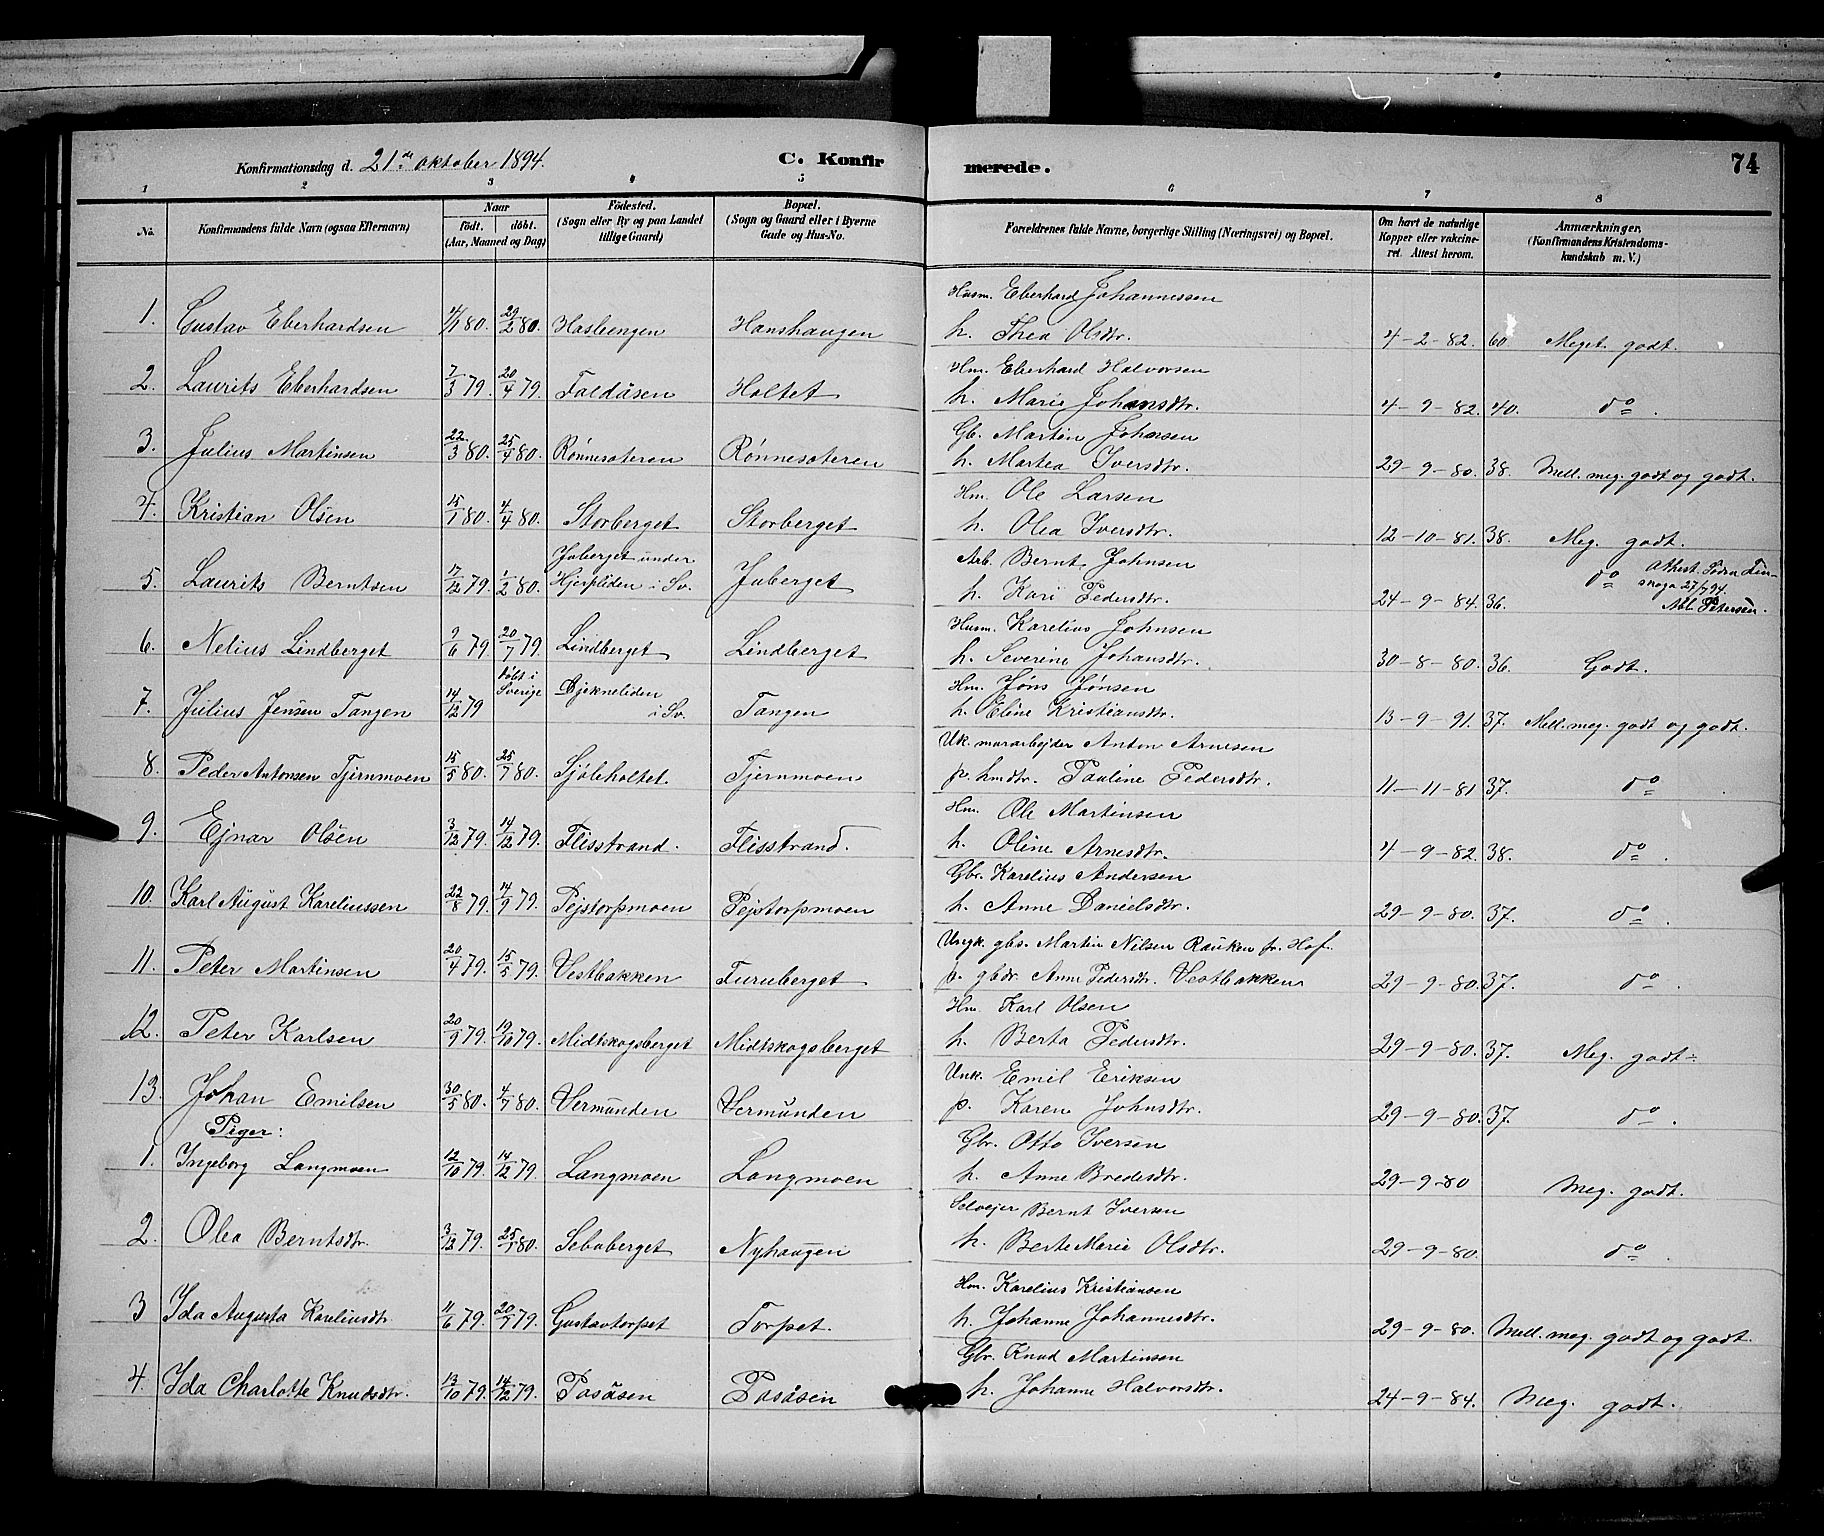 Konfirmationsdag d. 21de oktober 1894. C. Konfir merede. 74
1 2 3 4 5 6 7 8
No. Konfirmandens fulde Navn (ogsaa Efternavn) Naar født. døbt. (Aar, Maaned og Dag) Fødested. (Sogn eller By og paa Landet tillige Gaard) Bopæl. (Sogn og Gaard eller i Byerne Gade og Hus-No. Forældrenes fulde Navne, borgerlige Stilling (Næringsvei) og Bopæl. Om havt de naturlige Kopper eller vakcineret. Attest herom. Anmærkninger. (Konfirmandens Kristendomskundskab m. V.)
Husm. Eberhard Johannessen
1. Gustav Eberhardsen 4/1 80. 29/2 80. Hasleengen Hanshaugen h. Thea Olsdtr. 4-2-82. 60 Meget godt.
Hm. Eberhard Halvorsen
2. Laurits Eberhardsen 7/3 79. 20/4 79. Faldåsen Holtet h. Marie Johansdtr. 4-9-82. 40. do.
Gb. Martin Johnsen
3. Julius Martinsen 22/3 80. 25/4 80. Rønnesæteren Rønnesæteren h. Martea Iversdtr. 29-9-80. 38. Mell. meg. godt og godt.
Hm. Ole Larsen
4. Kristian Olsen 15/1 80. 4/4 80. Storberget Storberget h. Olea Iversdtr. 12-10-81. 38. Meg. godt.
Juberget under Arb. Bernt Johnsen Attest. Södra Fin-
5. Laurits Berntsen 17/12 79. 1/2 80. Hjerpliden i Sv. Juberget h. Kari Pedersdtr. 24-9-84. 36. do skoga 27/7 94.
Petersen.
Husm. Karelius Johnsen
6. Nelius Lindberget 9/6 79 20/7 79. Lindberget Lindberget h. Severine Johansdtr. 30-8-80. 36. Godt.
Hm. Jöns Jönsen
7. Julius Jensen Tangen 14/12 79 døbt i Sverige Djekneliden i Sv. Tangen h. Eline Kristiansdtr. 13-9-91. 37. Mell. meg. godt og godt.
Uk. murarbejder Anton Arnesen
8. Peder Antonsen Tjernmoen 15/5 80. 25/7 80. Sjöliholtet Tjernmoen p. hmdtr. Pauline Pedersdtr. 11-11-81 37. do.
Hm. Ole Martinsen
9. Ejnar Olsen 3/12 79. 14/12 79. Flisstrand. Flisstrand. h. Oline Arnesdtr. 4-9-82. 38. do.
Gbr. Karelius Andersen
10. Karl August Kareliussen 22/8 79. 14/9 79. Pejstorpmoen Pejstorpmoen h. Anne Danielsdtr. 29-9-80. 37. do.
Ungk. gbs. Martin Nilsen Rauken fr. Hof.
11. Peter Martinsen 20/4 79. 15/5 79. Vestbakken Furuberget p. gbdr. Anne Pedersdtr. Vestbakken 29-9-80. 37. do.
Hm. Karl Olsen
12. Peter Karlsen 20/9 79. 19/10 79. Midtskogsberget Midtskogsberget h. Berta Pedersdtr. 29-9-80. 37. Meg. godt.
Unk. Emil Eriksen
13. Johan Emilsen 30/5 80. 4/7 80. Vermunden Vermunden p. Karen Johnsdtr. 29-9-80. 37. do.
Piger:
Gbr. Otto Iversen
1. Ingeborg Langmoen 12/10 79. 14/12 79. Langmoen Langmoen h. Anne Bredesdtr. 29-9-80 Meg. godt.
Selvejer Bernt Iversen
2. Olea Berntsdtr. 3/12 79. 25/1 80. Sebuberget Nyhaugen h. Berte Marie Olsdtr. 29-9-80. do.
Hm. Karelius Kristiansen
3 Ida Augusta Kareliusdtr. 11/6 79. 20/7 79. Gustavtorpet Torpet. h. Johanne Johannesdtr. 29-9-80. Mell. meg. godt og godt.
Gbr. Knud Martinsen
4. Ida Charlotte Knudsdtr. 13/10 79. 14/12 79. Pasåsen Pasåsen h. Johanne Halvorsdtr. 24-9-84. Meg. godt.